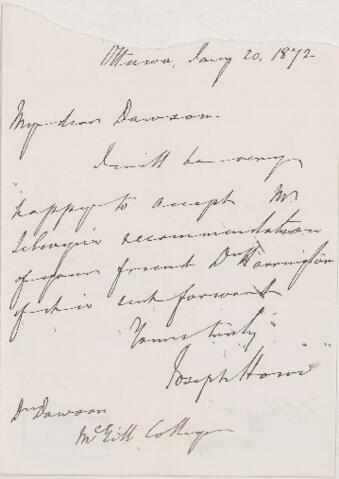 Ottawa, Jany 20, 1872
My dear Dawson.
I will be very
happy to accept Mr
Selwyn's recommendation
of your friend Dr Harrington
if it is sent forward
Yours truly
Joseph Howe
Dr Dawson
McGill College